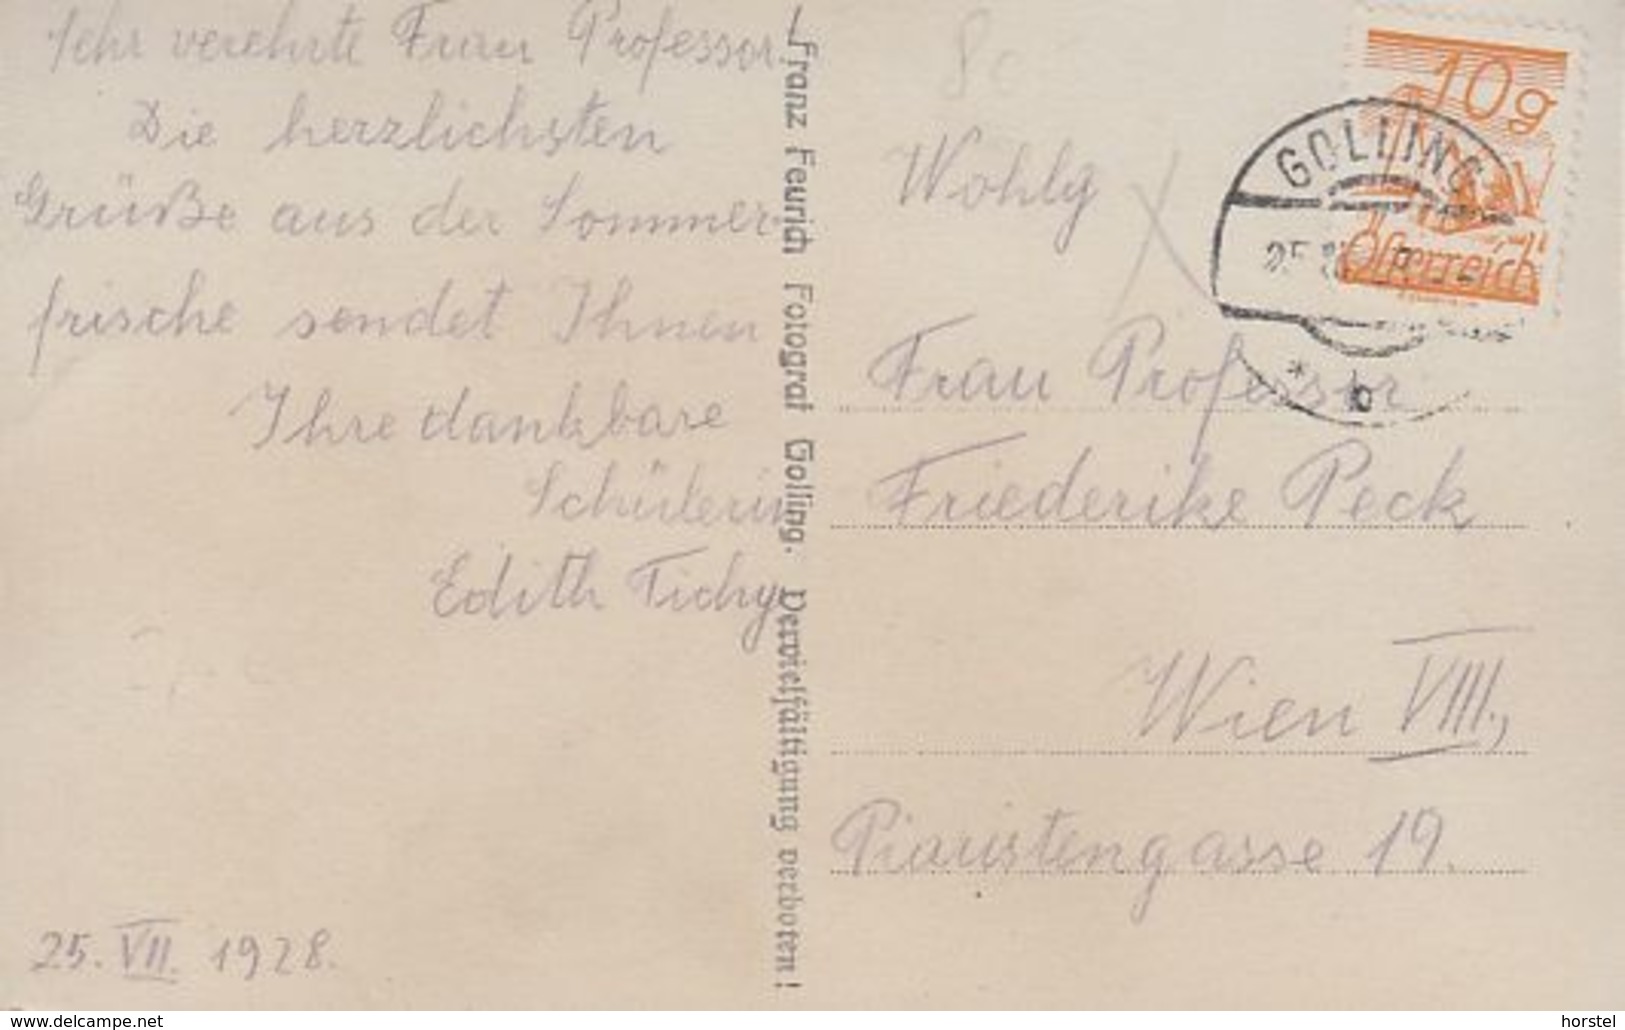 Sehr verehrte Frau Professor!
Die herzlichsten
Grüße aus der Sommer-
frische sendet Ihnen
Ihre dankbare
Schülerin
Edith Tichy
25. VII. 1928.
Franz Feurich Fotograf Golling. Vervielfältigung verboten!
10g
Österreich
GOLLING
25
b
Wohlg
Frau Professor
Friederike Peck
Wien VIII.,
Piaristengasse 19.
www.delcampe.net
horstel